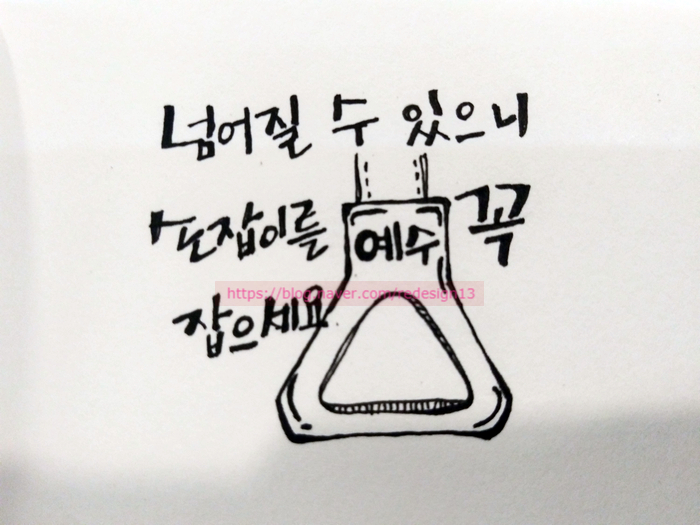 넘어질 수 있으니
손잡이를 예수 꼭
https://blog.naver.com/redesign13
잡으세요